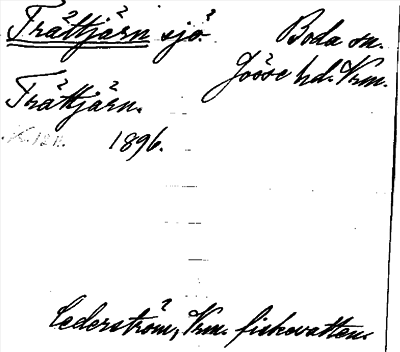 Trättjärn sjö.
Boda sn.
Jösse hd. Vrm.
Trättjärn.
1896.
Cederström, Vrm. fiskevatten.